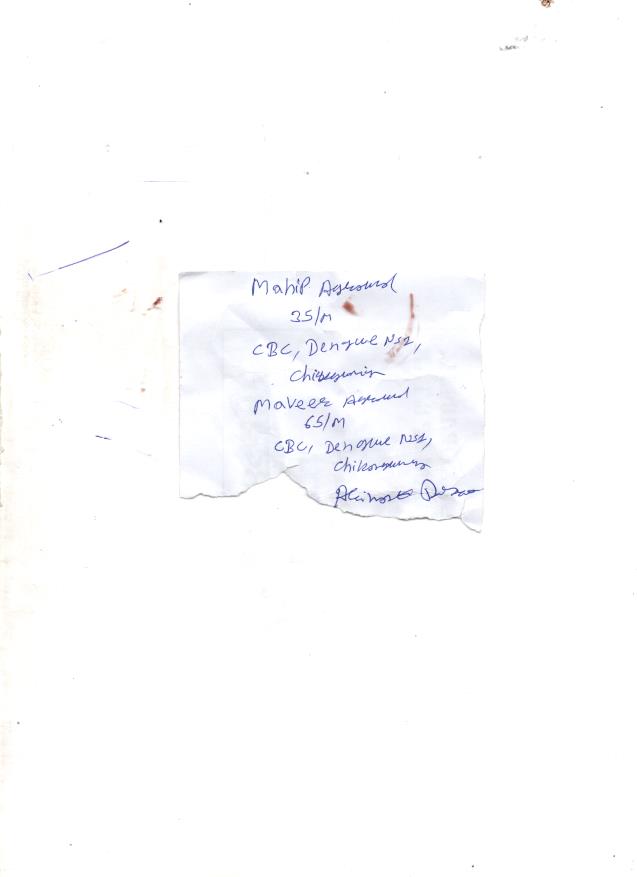 Mahip Agrawal
35/M
CBC, Dengue NS1,
Chikungunia
Maveer Agrawal
65/M
CBC, Dengue NS1,
Chikungunia